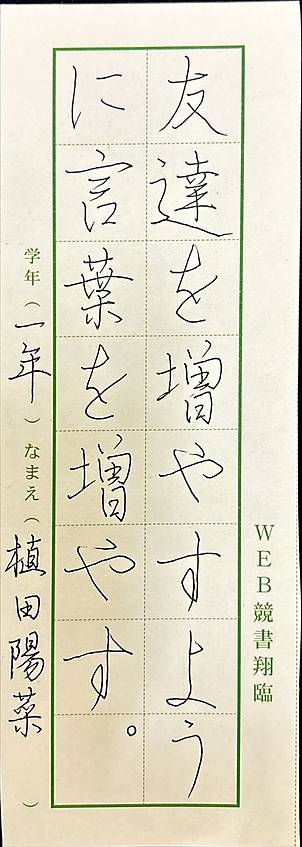 WEB競書翔臨
友達を増やすよう
に言葉を増やす。
学年（一年）なまえ（植田陽菜）